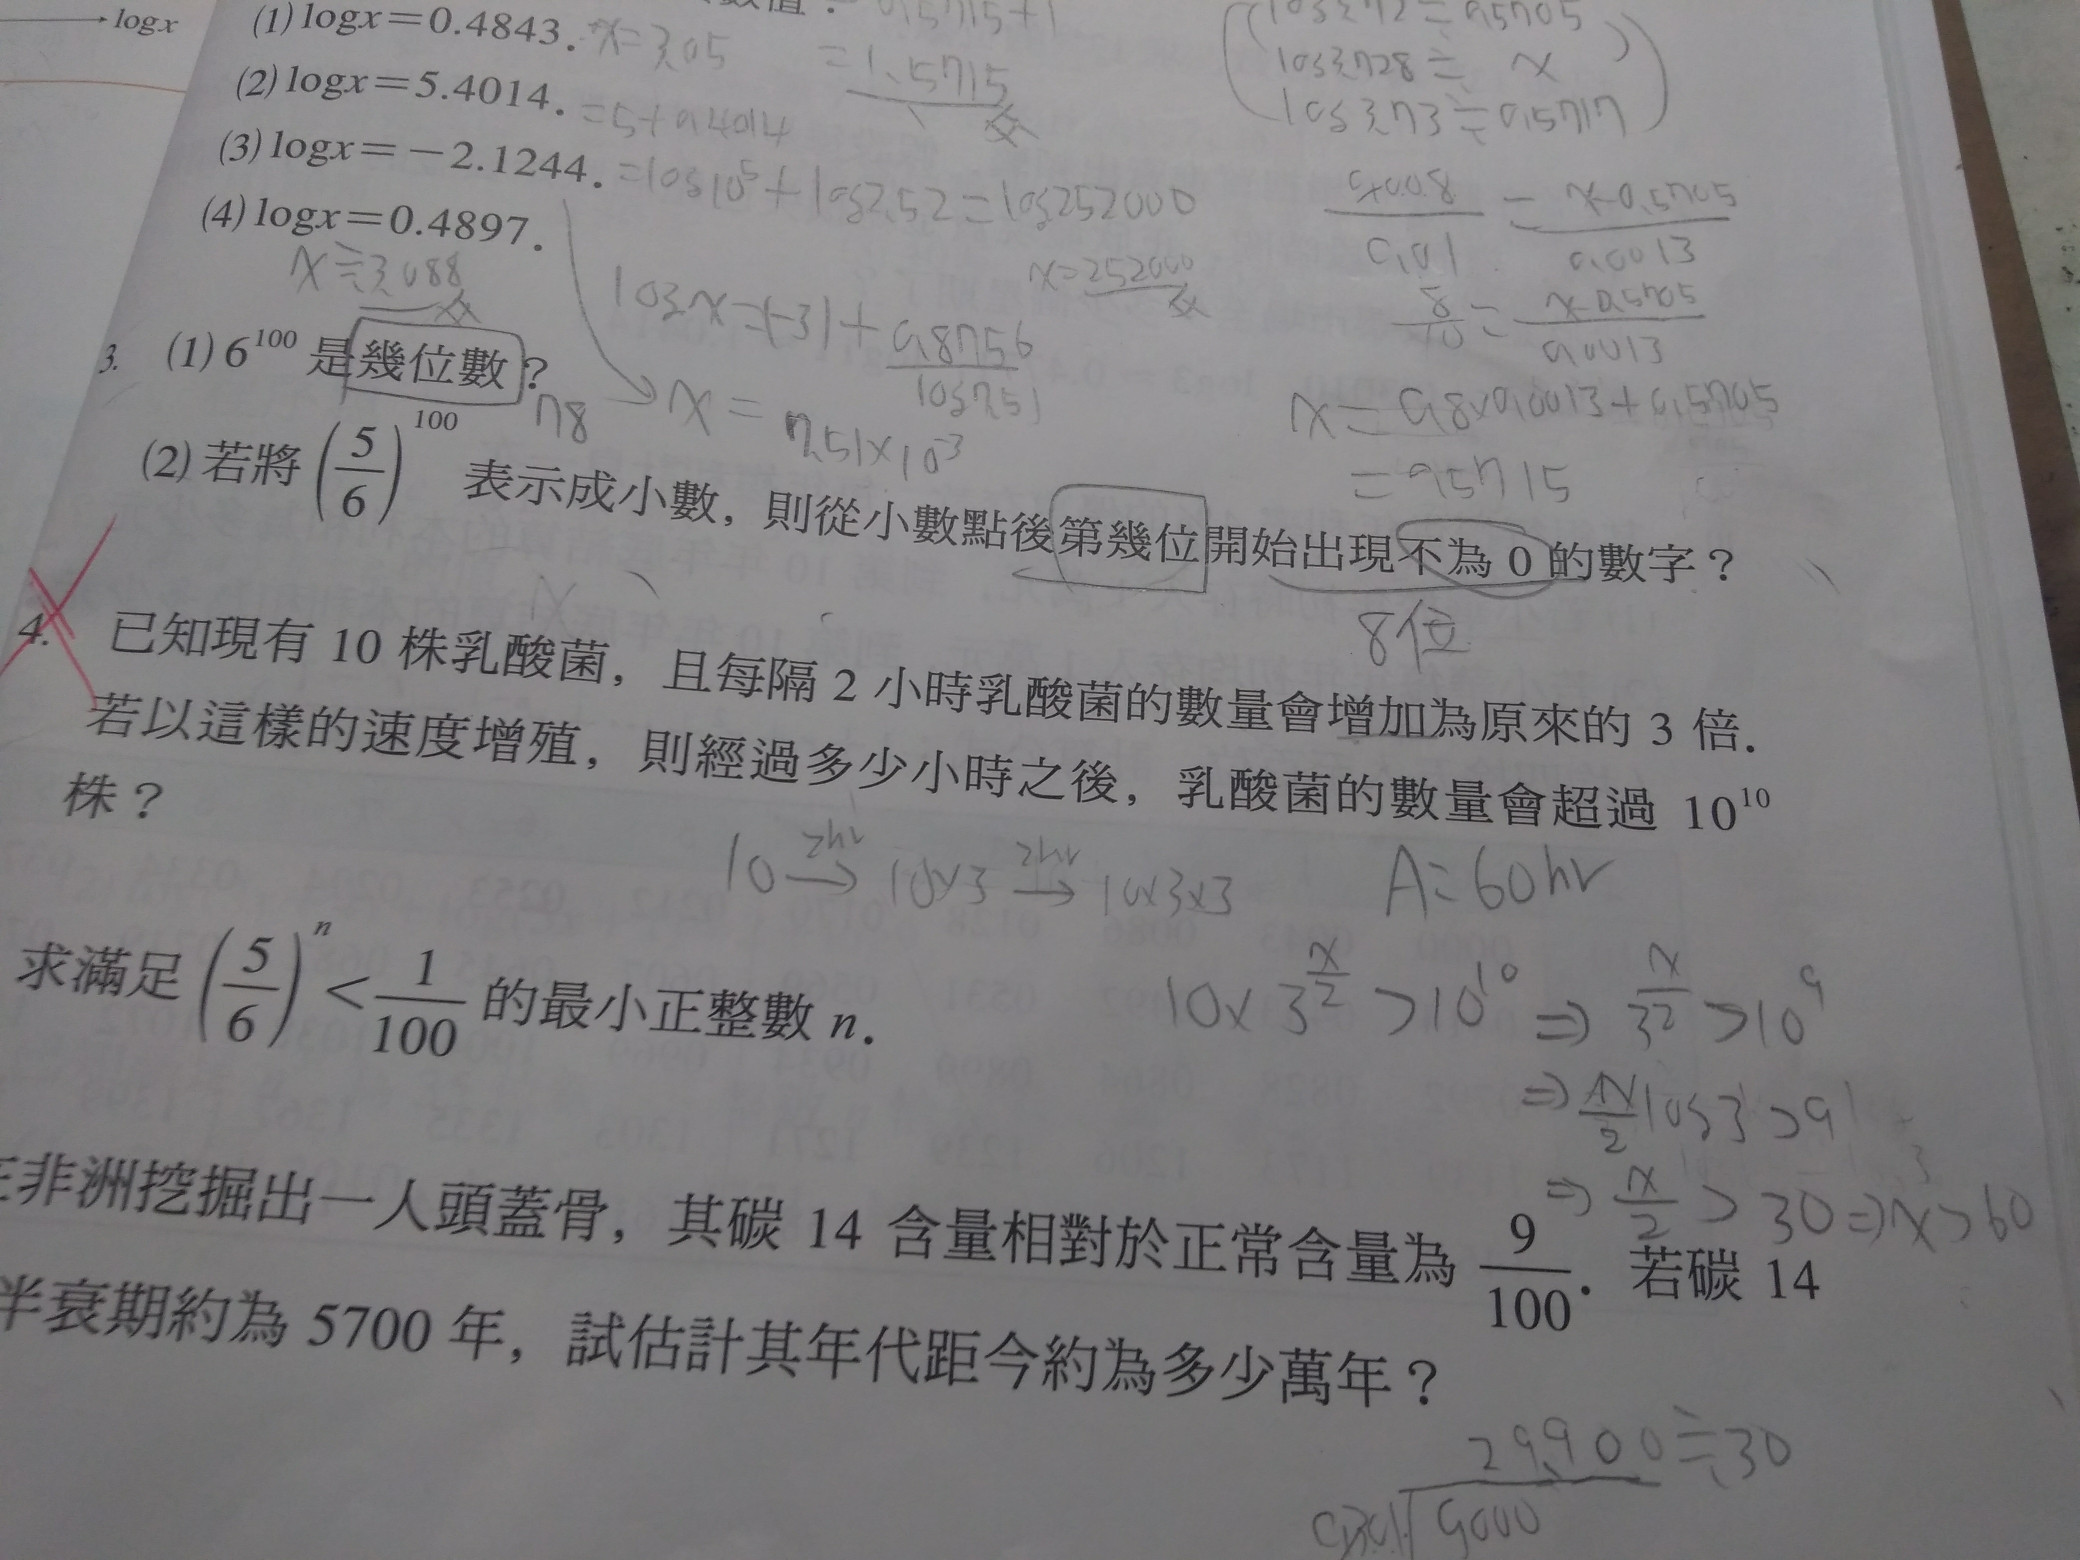 logx
(1) logx=0.4843. x=3.05
=1.5715
(2) logx=5.4014. =5+0.4014
(3) logx=-2.1244. =log10⁵+log2.52=log252000
x=252000
(4) logx=0.4897.
x≒3.088
logx=(-3)+0.8756
log7.51
x=7.51×10⁻³
log3.72≒0.5705
log3.728≒x
log3.73≒0.5717
0.008/0.01=x-0.5705/0.0013
8/10=x-0.5705/0.0013
x=0.8×0.0013+0.5705
=0.5715
3. (1) 6¹⁰⁰ 是幾位數? 78
(2) 若將 (5/6)¹⁰⁰ 表示成小數，則從小數點後第幾位開始出現不為 0 的數字？
8位
4. 已知現有 10 株乳酸菌，且每隔 2 小時乳酸菌的數量會增加為原來的 3 倍．
若以這樣的速度增殖，則經過多少小時之後，乳酸菌的數量會超過 10¹⁰
株？
10 →2hr 10×3 →2hr 10×3×3 A:60hr
10×3^(x/2)>10¹⁰ ⇒ 3^(x/2)>10⁹
⇒ x/2 log3>9
⇒ x/2 > 30 ⇒ x>60
求滿足 (5/6)ⁿ < 1/100 的最小正整數 n．
非洲挖掘出一人頭蓋骨，其碳 14 含量相對於正常含量為 9/100．若碳 14
半衰期約為 5700 年，試估計其年代距今約為多少萬年？
29.900≒30
9000